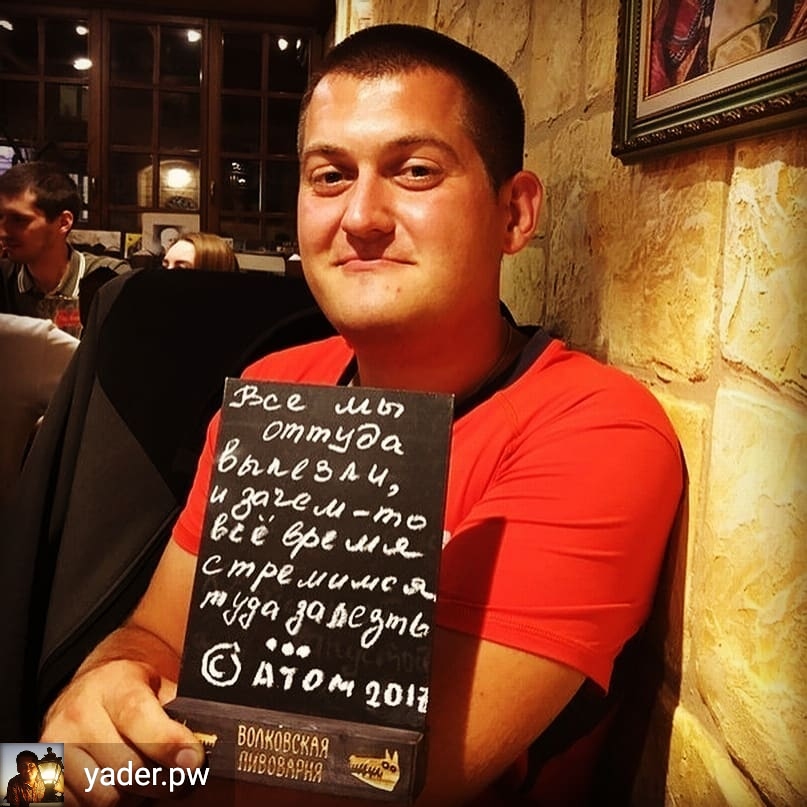 Все мы
оттуда
вылезли,
и зачем-то
всё время
стремимся
туда залезть
...
© АТОМ 2017
ВОЛКОВСКАЯ
ПИВОВАРНЯ
yader.pw